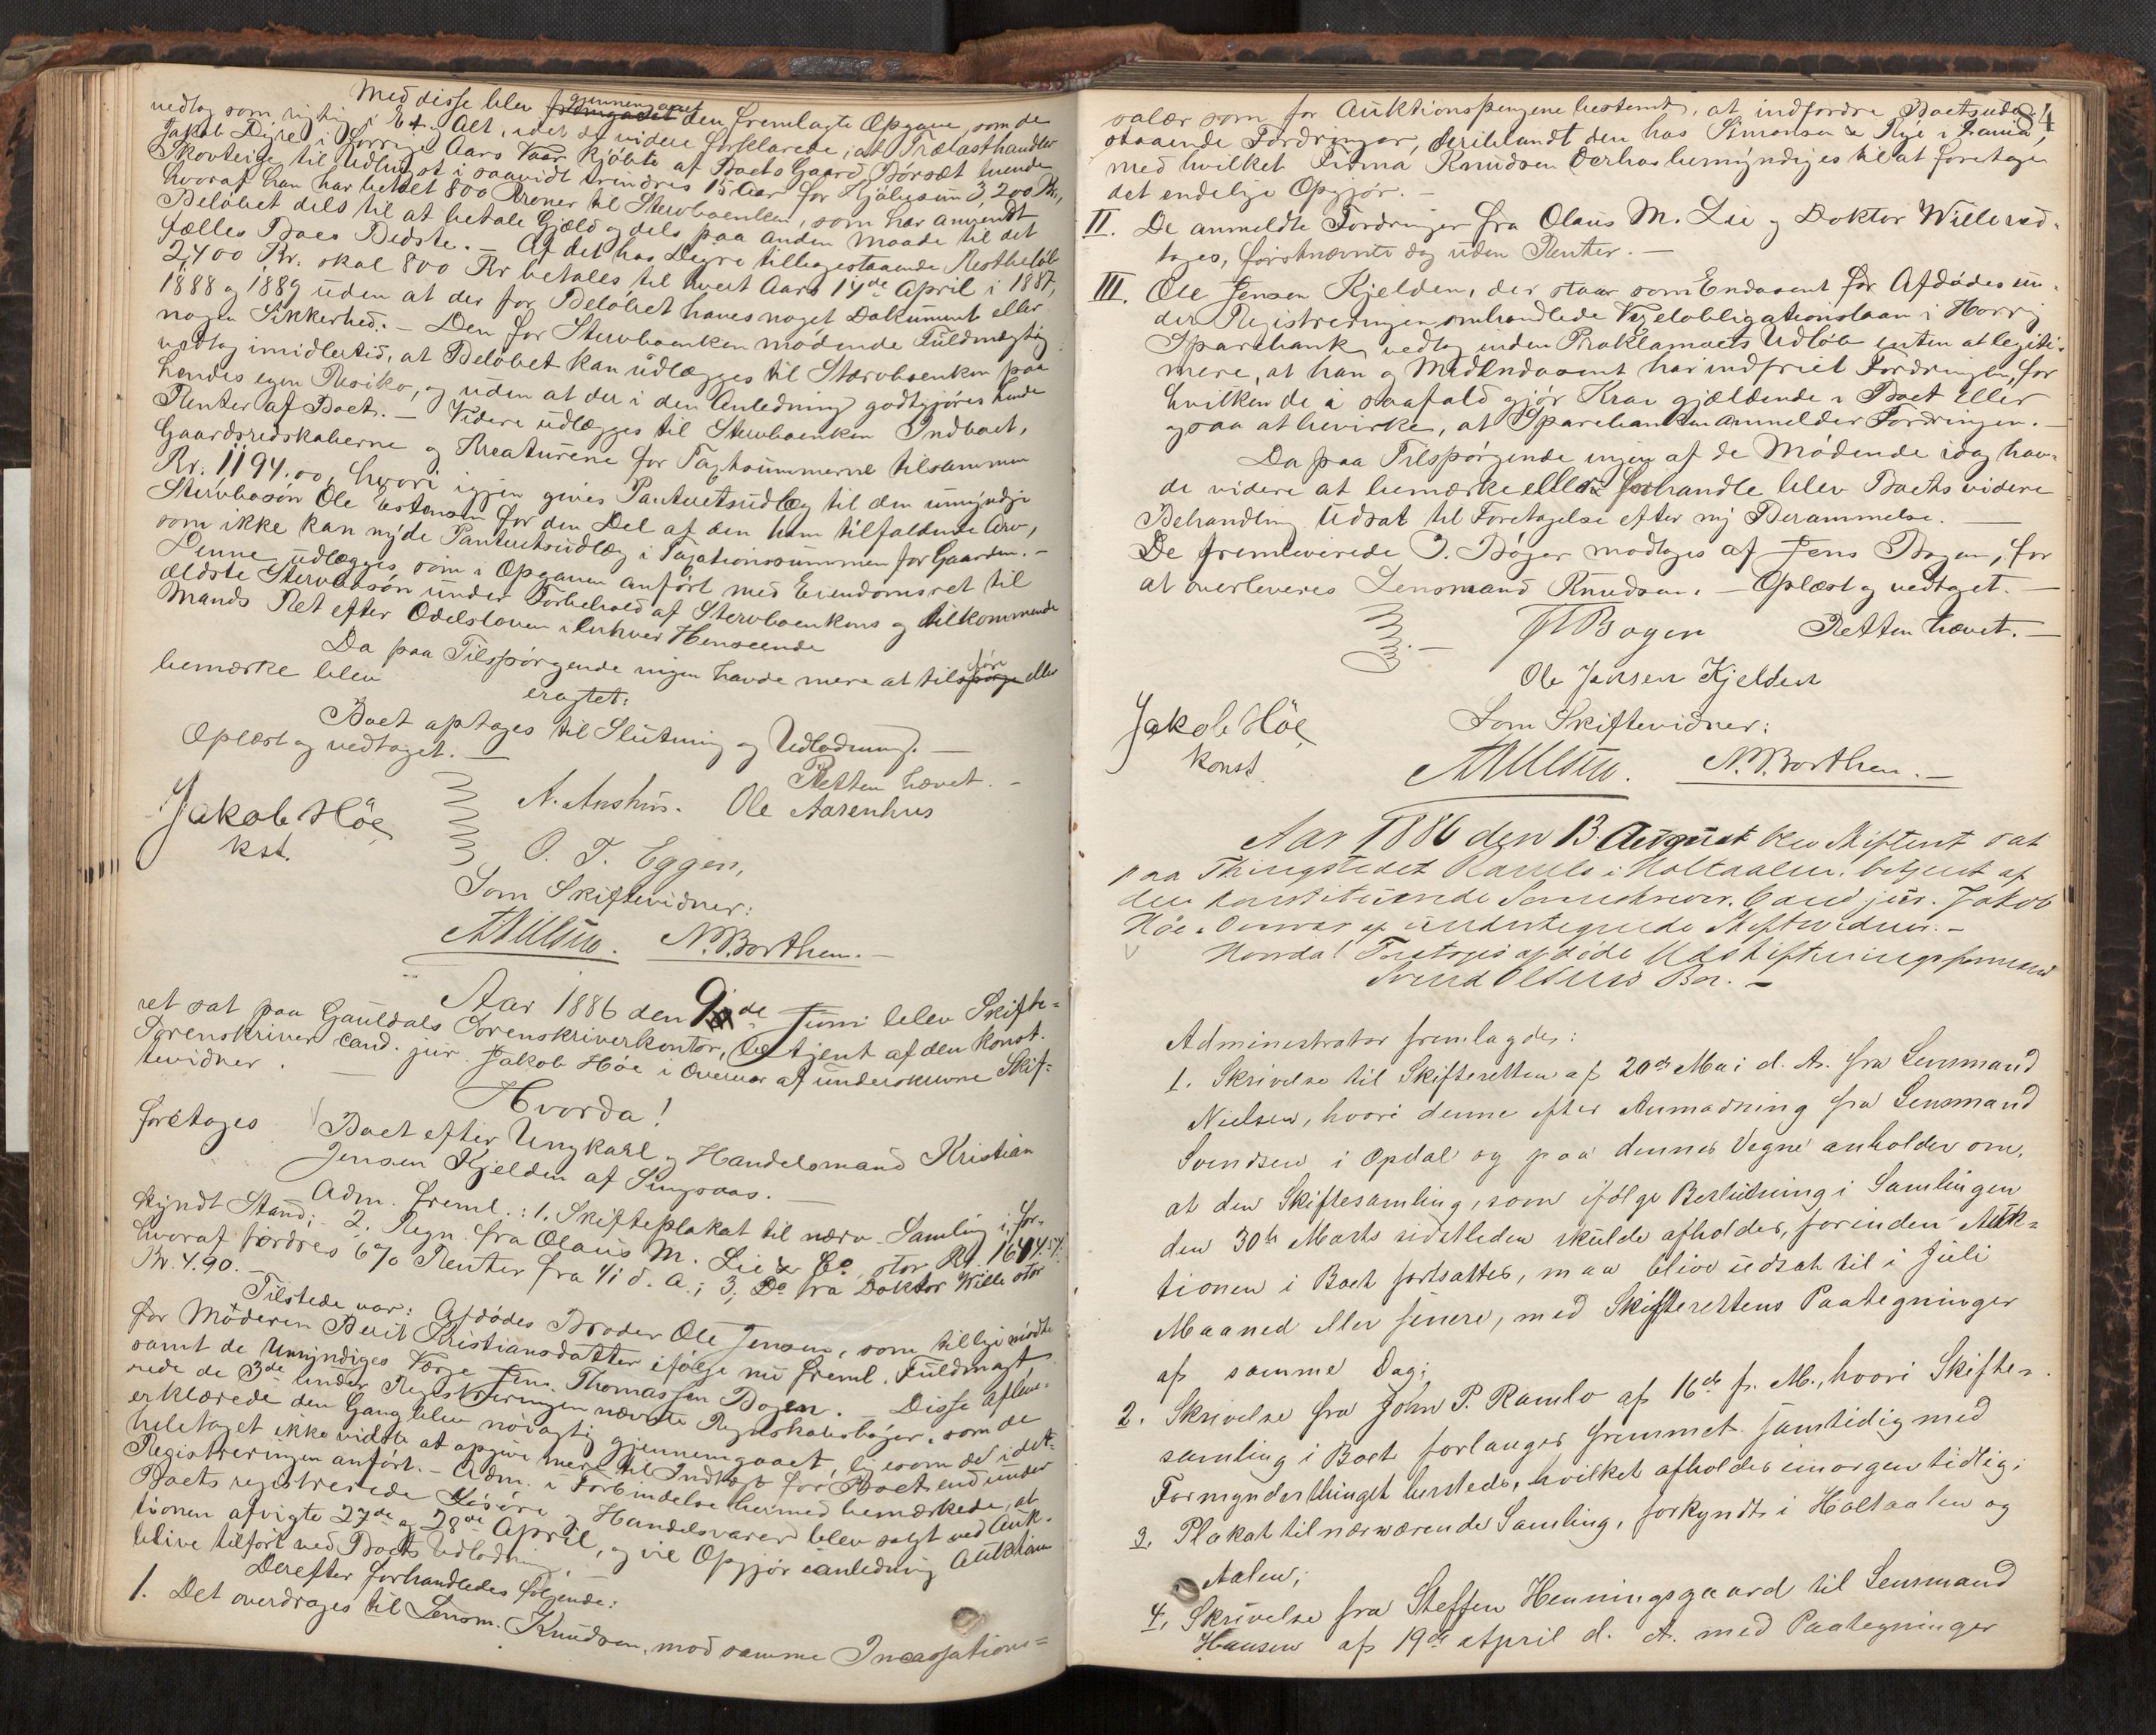 Med disse blev gjennemgaaet den fremlagte Opgave, som de
vedtog som rigtig i Et og Alt, idet de videre forklarede, at Trælasthandler
Jakob Digre i forrige Aars Vaar kjøbte af Boets Gaard Børsæt tvende
Skovteige til Udhugst i saavidt trindres 15 Aar for Kjøbesum 3,200 Kr,
hvoraf han har betalt 800 Kroner til Stervboenken, som har anvendt
Beløbet dels til at betale Gjæld og dels paa anden Maade til det
fælles Boes Bedste. – Af det hos Digre tilbagestaaende Restbeløb
2,400 Kr. skal 800 Kr betales til hvert Aars 14de April i 1887,
1888 og 1889 uden at der for Beløbet haves noget Dokument eller
nogen Sikkerhed. – Den for Stervboenken mødende Fuldmægtig
vedtog imidlertid, at Beløbet kan udlægges til Stervboenken paa
hendes egen Risiko, og uden at der i den Anledning godtgjøres hende
Renter af Boet. – Videre udlægges til Stervboenken Indboet,
Gaardsredskaberne og Kreaturene for Taxtsummerne tilsammen
Kr. 1194.00, hvori igjen gives Panteretsudlæg til den umyndige
Stervbosøn Ole Estensen for den Del af den ham tilfaldende Arv,
som ikke kan nyde Panteretsudlæg i Taxationssummen for Gaarden. –
Denne udlægges som i Opgaven anført med Eiendomsret til
ældste Stervbosøn under Forbehold af Stervboenkens og tilkommende
Mands Ret efter Odelsloven i enhver Henseende
Da paa Tilspørgende ingen havde mere at tilføre eller
bemærke blev
eragtet:
Boet optages til Slutning og Udlodning. –
Oplæst og vedtaget. –
Retten hævet. –
Jakob Høe
kst.
N. Aushus. Ole Aarenhus
O. T. Eggen,
Som Skiftevidner:
N. Borthen. –
Aar 1886 den 9de Juni blev Skifte=
ret sat paa Gauldals Sorenskriverkontor, betjent af den konst.
Sorenskriver cand. jur. Jakob Høe i Overvær af underskrevne Skif=
tevidner. –
Hvorda!
foretoges Boet efter Ungkarl og Handelsmand Kristian
Jensen Kjelden af Singsaas. –
Adm. freml.: 1. Skifteplakat til nærv. Samling i for-
kyndt Stand; 2. Regn. fra Olaus M. Lie & Co stor Kr. 1644.57.
hvoraf fordres 6% Renter fra 1/1 d. A.; 3, Do fra Doktor Wille stor
Kr. 4.90. –
Tilstede var: Afdødes Broder Ole Jensen, som tillige mødte
for Moderen Berit Kristiansdatter ifølge nu freml. Fuldmagt,
samt de Umyndiges Værge Jens Thomassen Bogen. – Disse afleve-
rede de 3de under Registreringen nævnte Regnskabsbøger, som de
erklærede den Gang blev nøiagtig gjennemgaaet, ligesom de i det-
heletaget ikke vidste at opgive mere til Indtægt for Boet end under
Registreringen anført. – Adm. i Forbindelse hermed bemærkede, at
Boets registrerede Løsøre og Handelsvarer blev solgt ved Auk-
tionen afvigte 27de og 28de April, og vil Opgjør i anledning Auktion
blive tilført ved Boets Udlodning.
Derefter forhandledes følgende:
1. Det overdrages til Lensm. Knudsen, mod samme Incassations=
84
salær som for Auktionspengene bestemt, at indfordre Boets ude-
staaende Fordringer, deriblandt den hos Simonsen & Rye i
med hvilket Firma Knudsen derhos bemyndiges til at foretage
det endelige Opgjør. –
II. De anmeldte Fordringer fra Olaus M. Lie og Doktor Wille ved-
toges, førstnævnte dog uden Renter. –
III. Ole Jensen Kjelden, der staar som Endosent for Afdødes un-
der Registreringen omhandlede Vexelobligationslaan i Horrig
Sparebank, vedtog inden Proklamaets Udløb enten at legiti-
mere, at han og Medendosent har indfriet Fordringen, for
hvilken de i saafald gjør Krav gjældende i Boet eller
ogsaa at bevirke, at Sparebanken anmelder Fordringen. –
Da paa Tilspørgende ingen af de Mødende idag hav-
de videre at bemærke eller forhandle blev Boets videre
Behandling Udsat til Foretagelse efter ny Berammelse. –
De fremleverede 3. Bøger modtoges af Jens Bogen, for
at overleveres Lensmand Knudsen. – Oplæst og vedtaget. –
Retten hævet. –
JTBogen
Ole Jensen Kjelden
Jakob Høe
konst.
Som Skiftevidner:
N. Borthen. –
Aar 1886 den 13 August blev Skifteret sat
paa Thingstedet Ramlo i Holtaalen, betjent af
den konstituerede Sorenskriver, Cand jur. Jakob
Høe i Overvær af undertegnede Skiftevidner. –
Hvorda! Foretoges afdøde Udskiftningsformand
Svend Olsens Bo. –
Administrator fremlagde:
1. Skrivelse til Skifteretten af 20de Mai d. A. fra Lensmand
Nielsen, hvori denne efter Anmodning fra Lensmand
Svendsen i Opdal og paa dennes Vegne anholder om,
at den Skiftesamling, som ifølge Beslutning i Samlingen
den 30te Marts sidstleden skulde afholdes, forinden Auk=
tionen i Boet fortsattes, maa blive udsat til i Juli
Maaned eller senere, med Skifterettens Paategninger
af samme Dag;
2. Skrivelse fra John P. Ramlo af 16de f. M., hvori Skifte=
samling i Boet forlanges fremmet samtidig med
Formynderthinget hersteds, hvilket afholdes imorgen tidlig;
3. Plakat til nærværende Samling, forkyndt i Holtaalen og
Aalen;
4. Skrivelse fra Steffen Henningsgaard til Lensmand
Hansen af 19de April d. A. med Paategninger